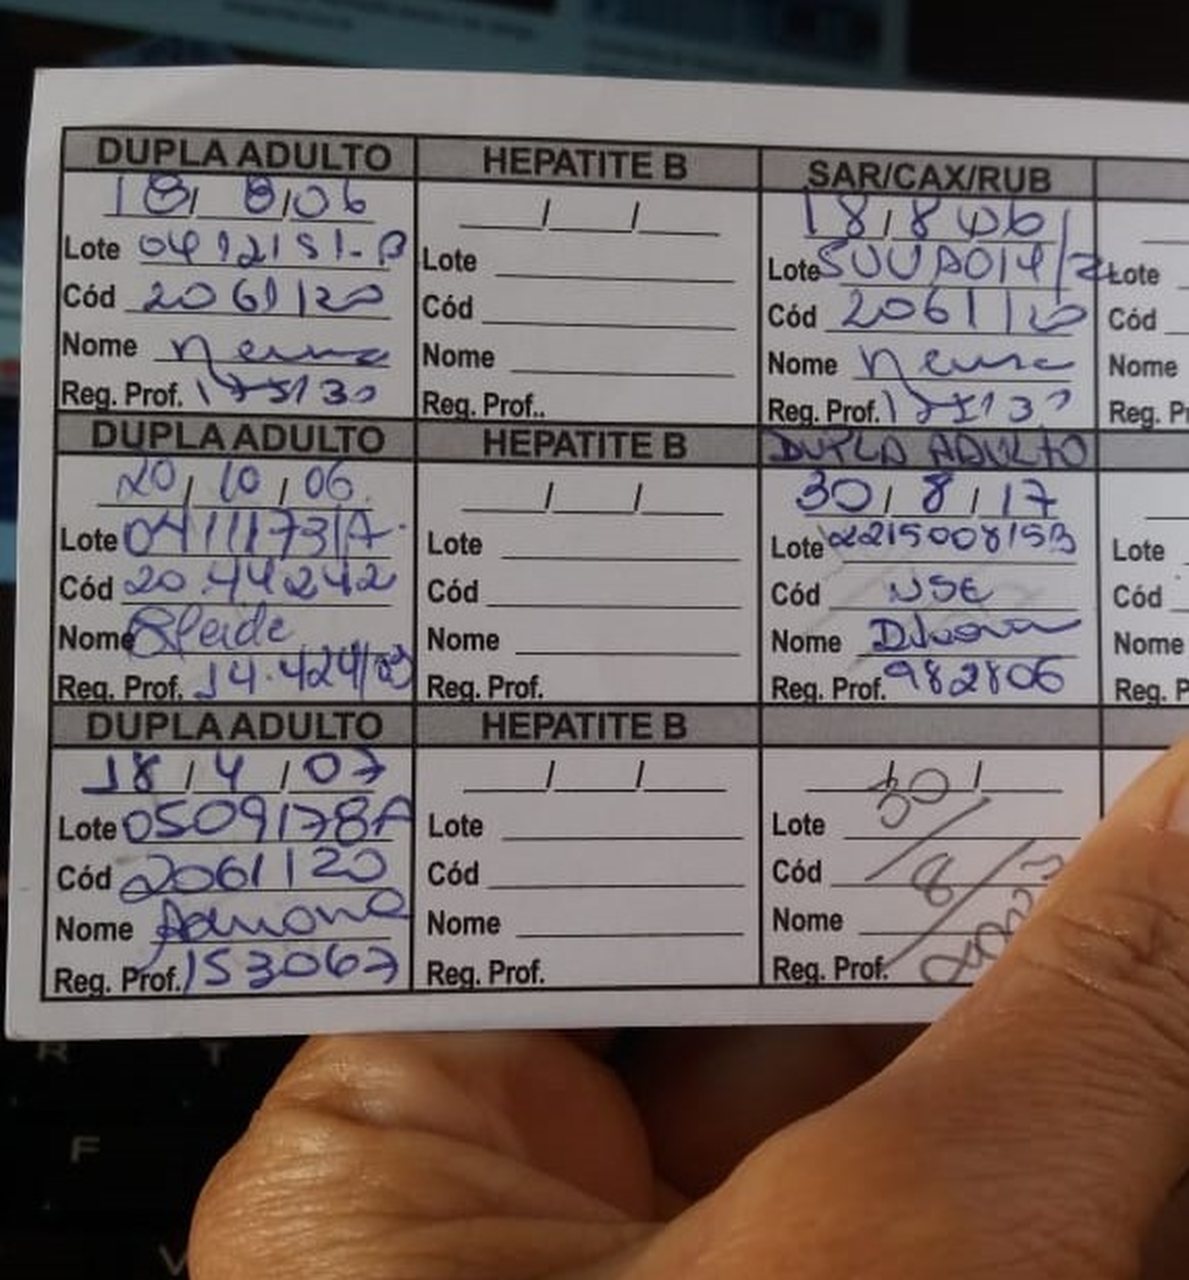 DUPLA ADULTO
18/ 8/06
Lote
Cód 2061120
Nome Neusa
Reg. Prof. 175130
DUPLA ADULTO
20/10/06
Lote 0411173/A
Cód 20.44242
Nome Cleide
Reg. Prof. 14.424/03
DUPLA ADULTO
18/4/07
Lote 0509178A
Cód 2061120
Nome Adriana
Reg. Prof. 153067
HEPATITE B
/ /
Lote
Cód
Nome
Reg. Prof..
HEPATITE B
/ /
Lote
Cód
Nome
Reg. Prof.
HEPATITE B
/ /
Lote
Cód
Nome
Reg. Prof.
SAR/CAX/RUB
18/8/06
Lote
Cód 2061120
Nome Neusa
Reg. Prof.
DUPLA ADULTO
30/8/17
Lote 221500815B
Cód USE
Nome
Reg. Prof. 982806
30/
8/
Lote
Cód
Nome
Reg. Prof.
Lote
Cód
Nome
Reg. Pr
Lote
Cód
Nome
Reg. P
R T
F
V